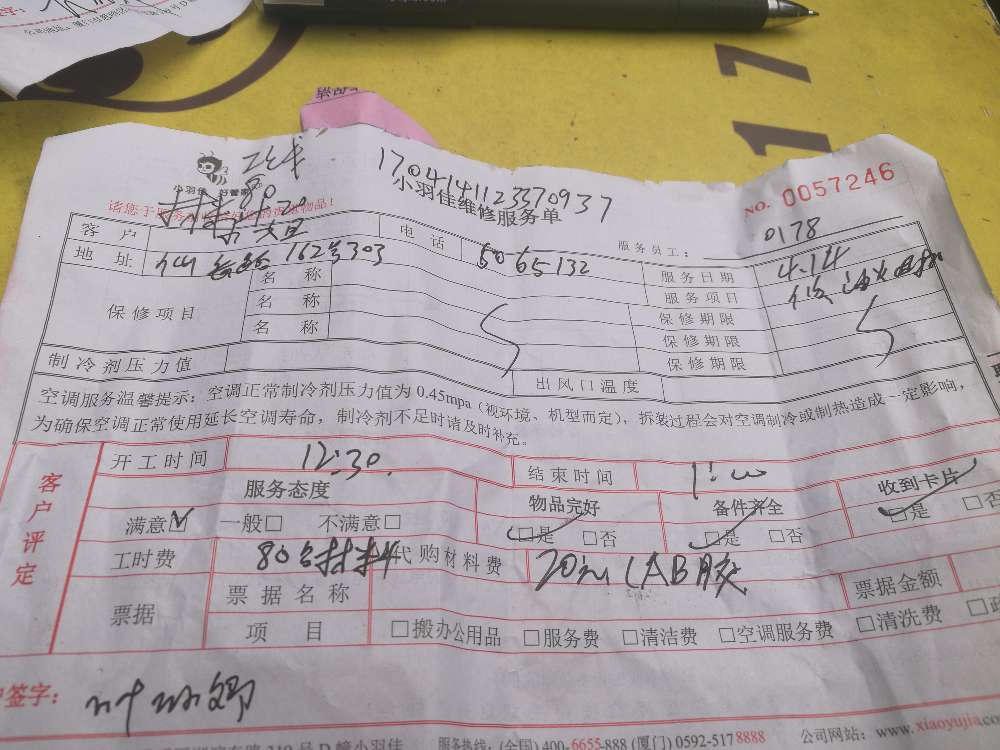 17
小羽佳 好管家
工钱
80
材料20
170414112337O937
小羽佳维修服务单
NO. 0057246
请您于服务
贵重物品!
服务员工: 0178
客户
电话 5065132
服务日期 4.14
地址 162号303
服务项目
保修项目
名称
保修期限
名称
保修期限
名称
保修期限
制冷剂压力值
出风口温度
空调服务温馨提示:空调正常制冷剂压力值为 0.45mpa(视环境、机型而定),拆装过程会对空调制冷或制热造成一定影响,
为确保空调正常使用延长空调寿命,制冷剂不足时请及时补充。
客户评定
开工时间 12:30
结束时间 1:00
服务态度
物品完好
备件齐全
收到卡片
满意☑ 一般□ 不满意□
☑是 □否
☑是 □否
☑是 □否
工时费 80
代购材料费 20元(AB胶
票据
票据名称
票据金额
项目 □搬办公用品 □服务费 □清洁费 □空调服务费 □清洗费
签字:
号D幢小羽佳
服务热线:(全国) 400-6655-888 (厦门) 0592-5178888
公司网站:www.xiaoyujia.com